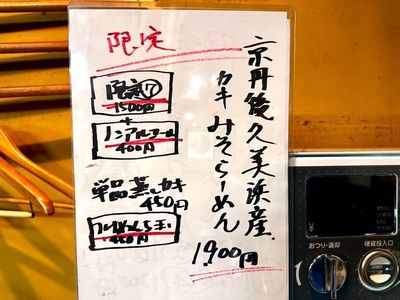 限定
京丹後久美浜産
カキみそらーめん
1900円
限定⑦
1500円
+
ノンアルコール
400円
単品蒸しカキ
450円
450円
¥
おつり・返却
硬貨投入口